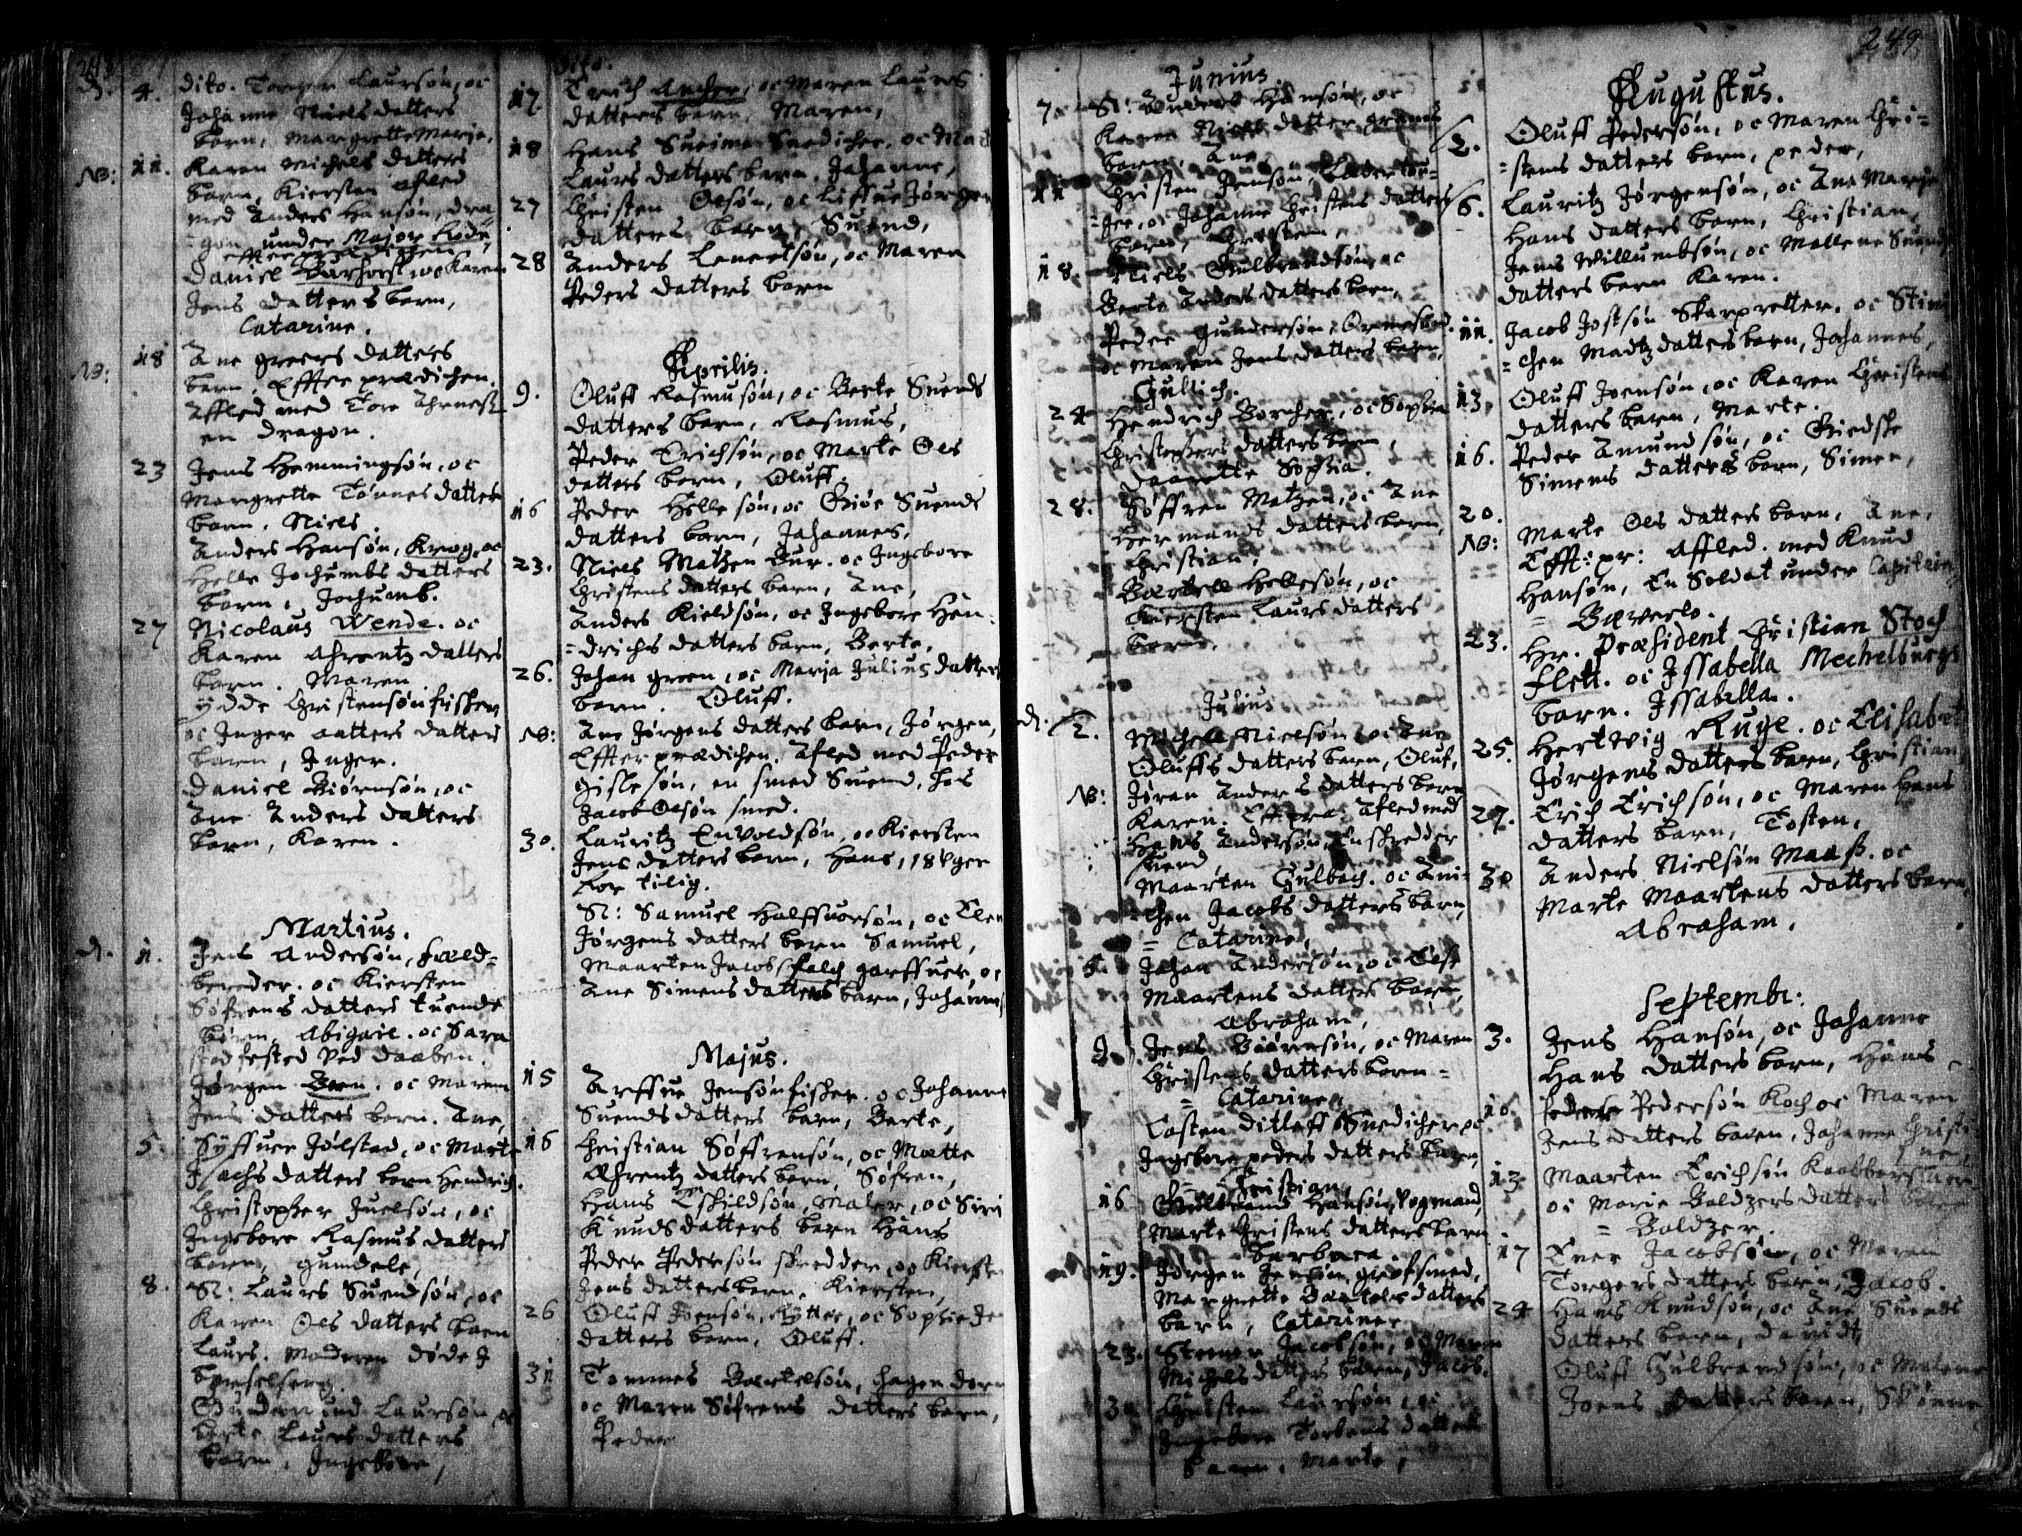 248
4. dito. Torger Laursøn, oc
Johanne Niels datters
barn, Margrette Marja.
NB: 11. Karen Michels datters
barn, Kiersten afled
med Anders Hansøn, dra
gon under Major Lode,
effter prædichen
Daniel Barhorst, oc Karen
Jens datters barn,
Catarine.
NB: 18 Ane greers datters
barn, Effter prædichen.
Affled med Tore
en dragon.
23 Jens Hemmingsøn, oc
Margrette Tønnes datters
barn, Niels.
Anders Hansøn, Krog, oc
Helle Jochumbs datters
barn, Jochumb.
27 Nicolaus Wende. oc
Karen Ahrentz datters
barn. Maren
ÿdde Christensøn fisker
oc Inger datters
barn, Inger.
Daniel Biørnsøn, oc
Ane Anders datters
barn, Karen.
Martius.
1. Jens Andersøn, Fæld=
bereder. oc Kiersten
Søfrens datters tuende
børn, Abigaie. oc Sara
stedfested ved daaben.
Jørgen Bern. oc Maren
Jens datters barn. Ane,
5. Syffuer Jolstad, oc Marte
Isachs datters barn Hendrich.
Christopher Juelsøn, oc
Ingebore Rasmus datters
barn, Gundele,
8. Sl: Laurs Suendsøn, oc
Karen Ols datters barn
Laurs. Moderen døde I
barselseng.
Gudmund Laursøn oc
Laurs datters
barn. Ingebore,
Dito.
17 Erich Ancher, oc Maren Laurs
datters barn, Maren,
18 Hans Snedicher, oc
Laurs datters barn, Johanne,
27 Christen Olsøn, oc Liffue Jørgens
datters barn, Suend,
28 Anders Lenertsøn, oc Maren
Peders datters barn
Aprilis.
9. Oluff Rasmusøn, oc Berte Suends
datters barn, Rasmus,
Peder Erichsøn, oc Marte Ols
datters barn, Oluff.
16 Peder Hellesøn, oc Giøe Suends
datters barn, Johannes,
23. Niels Matzen Bur. oc Ingebore
Christens datters barn, Ane,
Anders Kieldsøn, oc Ingebore Hen
=drichs datters barn, Berte,
26. Johan green, oc Marja Julius datters
barn. Oluff.
NB: Ane Jørgens datters barn, Jørgen,
Effter prædichen. Afled med Peder
Gislesøn, en smed Suend, hos
Jacob Olsøn smed.
30. Lauritz Enwoldsøn, oc Kiersten
Jens datters barn, Hans, 18 Vger
for tilig.
Sl: Samuel Halffuorsøn, oc Elen
Jørgens datters barn Samuel,
Maarten Jacobs falch garffuer, oc
Ane Simens datters barn, Johannes
Majus.
15 Arffue Jensøn fisker. oc Johanne
Suends datters barn, Berte,
16 Christian Søffrensøn, oc Mætte
Ahrentz datters barn, Søfren,
Hans Eskildsøn, Maler, oc Siri
Knuds datters barn Hans
Peder Pedersøn skredder, oc Kiersten
Jens datters barn, Kiersten,
26 Oluff Joensøn, Rytter, oc Sophie Je
datters barn, Oluff.
31 Tommes Bertelsøn, hagendorn
oc Maren Søfrens datters barn,
Peder
249
Junius
7. Sl: Anders Hansøn, oc
Karen Niels datter
barn, Ane
11 Christen Jensøn,
=Jee, oc Johanne Christens datters
barn, Christen,
18. Niels Gulbrandsøn, oc
Berte Anders datters barn,
Peder Gundersøn, Ormestad.
oc Maren Jens datters barn,
Gullich.
24 Hendrich Borcher, oc Sophia
Christophers datters barn,
Dorette Sophia.
28. Søffren Matzen, oc Ane
Hermands datters barn,
Christian,
Bertell Hellesøn, oc
Kiersten Laurs datters
barn,
Julius
2. Michell Nielsøn, oc Ane
Oluffs datters barn, Oluf,
NB: Jøran Anders datters barn
Karen. Eff: præ: Afled med
Hans Andersøn, En skredder
Suend
Maarten Gulbach. oc Ani=
=chen Jacobs datters barn,
= Catarine,
5. Johan Andersøn, oc Else
Maartens datters barn,
Abraham,
9. Jens Biørnsøn, oc Maren
Christens datters barn =
= Catarine,
Casten Ditleff Snedicher, oc
Ingebore peders datters barn,
Christian,
16 Gulbrand Hansøn, Vogmand,
Marte Christens datters barn
Barbara.
19. Jørgen Jensøn, grofsmed,
Margrette Bertels datters
barn, Catarine,
23. Steener Jacobsøn, oc Maren
Michels datters barn, Jacob.
30 Christen Laursøn, oc
Ingebore Torbens datters
barn, Marte,
Augustus.
2. Oluff Pedersøn, oc Maren Chri=
=stens datters barn, peder,
6. Lauritz Jørgensøn, oc Ane Marja
Hans datters barn, Christian,
Jens Willumbsøn, oc Mallene Suends
datters barn Karen.
11. Jacob Jostsøn Skarpretter. oc Stin
=chen Madtz datters barn, Johannes,
13. Oluff Joensøn, oc Karen Christens
datters barn, Marte.
16. Peder Amundsøn, oc Giedske
Simens datters barn, Simen,
20. Marte Ols datters barn, Ane,
NB: Efft: pr: Affled. med Knud
Hansøn, En Soldat under Capitein
= Bæverlo.
23. Hr. Præsident Christian Stoch
flett. oc Issabella Mechelburgs
barn. Issabella.
25. Hertvig Ruge. oc Elisabet
Jørgens datters barn, Christian,
27. Erich Erichsøn, oc Maren Hans
datters barn, Tosten,
30 Anders Nielsøn Maaß. oc
Marte Maartens datters barn,
Abraham.
Septembr:
3. Jens Hansøn, oc Johanne
Hans datters barn, Hans
10. Peder Pedersøn Koch oc Maren
Jens datters barn, Johanne Christi
ne
13 Maarten Erichsøn Kaabberslager
oc Marie Baldzers datters barn
= Baldzer.
17 Ener Jacobsøn, oc Maren
Torgers datters barn, Jacob.
24 Hans Knudsøn, oc Ane Suends
datters barn, Dauidt,
Oluff Gulbrandsøn, oc Malene
Joens datters barn,